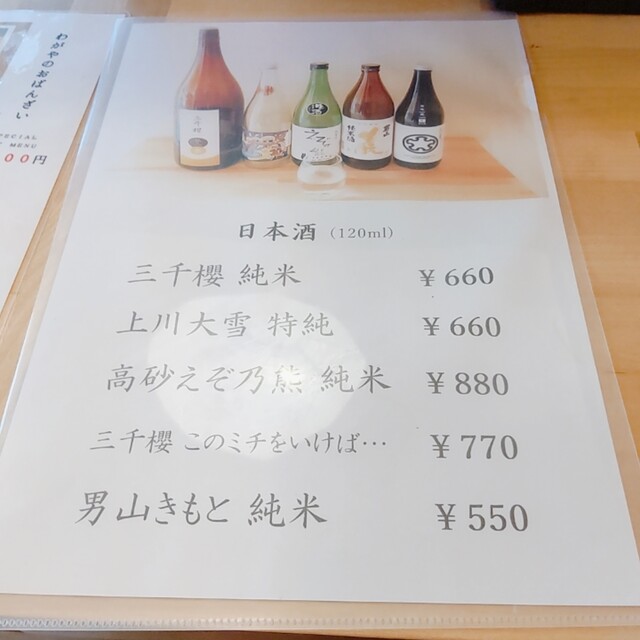 わがやのおばんざい
00円
日本酒 (120ml)
三千櫻 純米 ¥660
上川大雪 特純 ¥660
高砂えぞ乃熊 純米 ¥880
三千櫻 このミチをいけば… ¥770
男山きもと 純米 ¥550